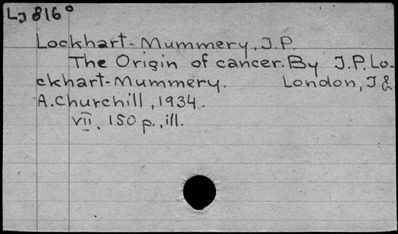 LJ 816°
Lockhart-Mummery, J.P.
The Origin of cancer. By J.P. Lo-
ckhart-Mummery. London, J &
A. Churchill, 1934.
VII, 150 p., ill.